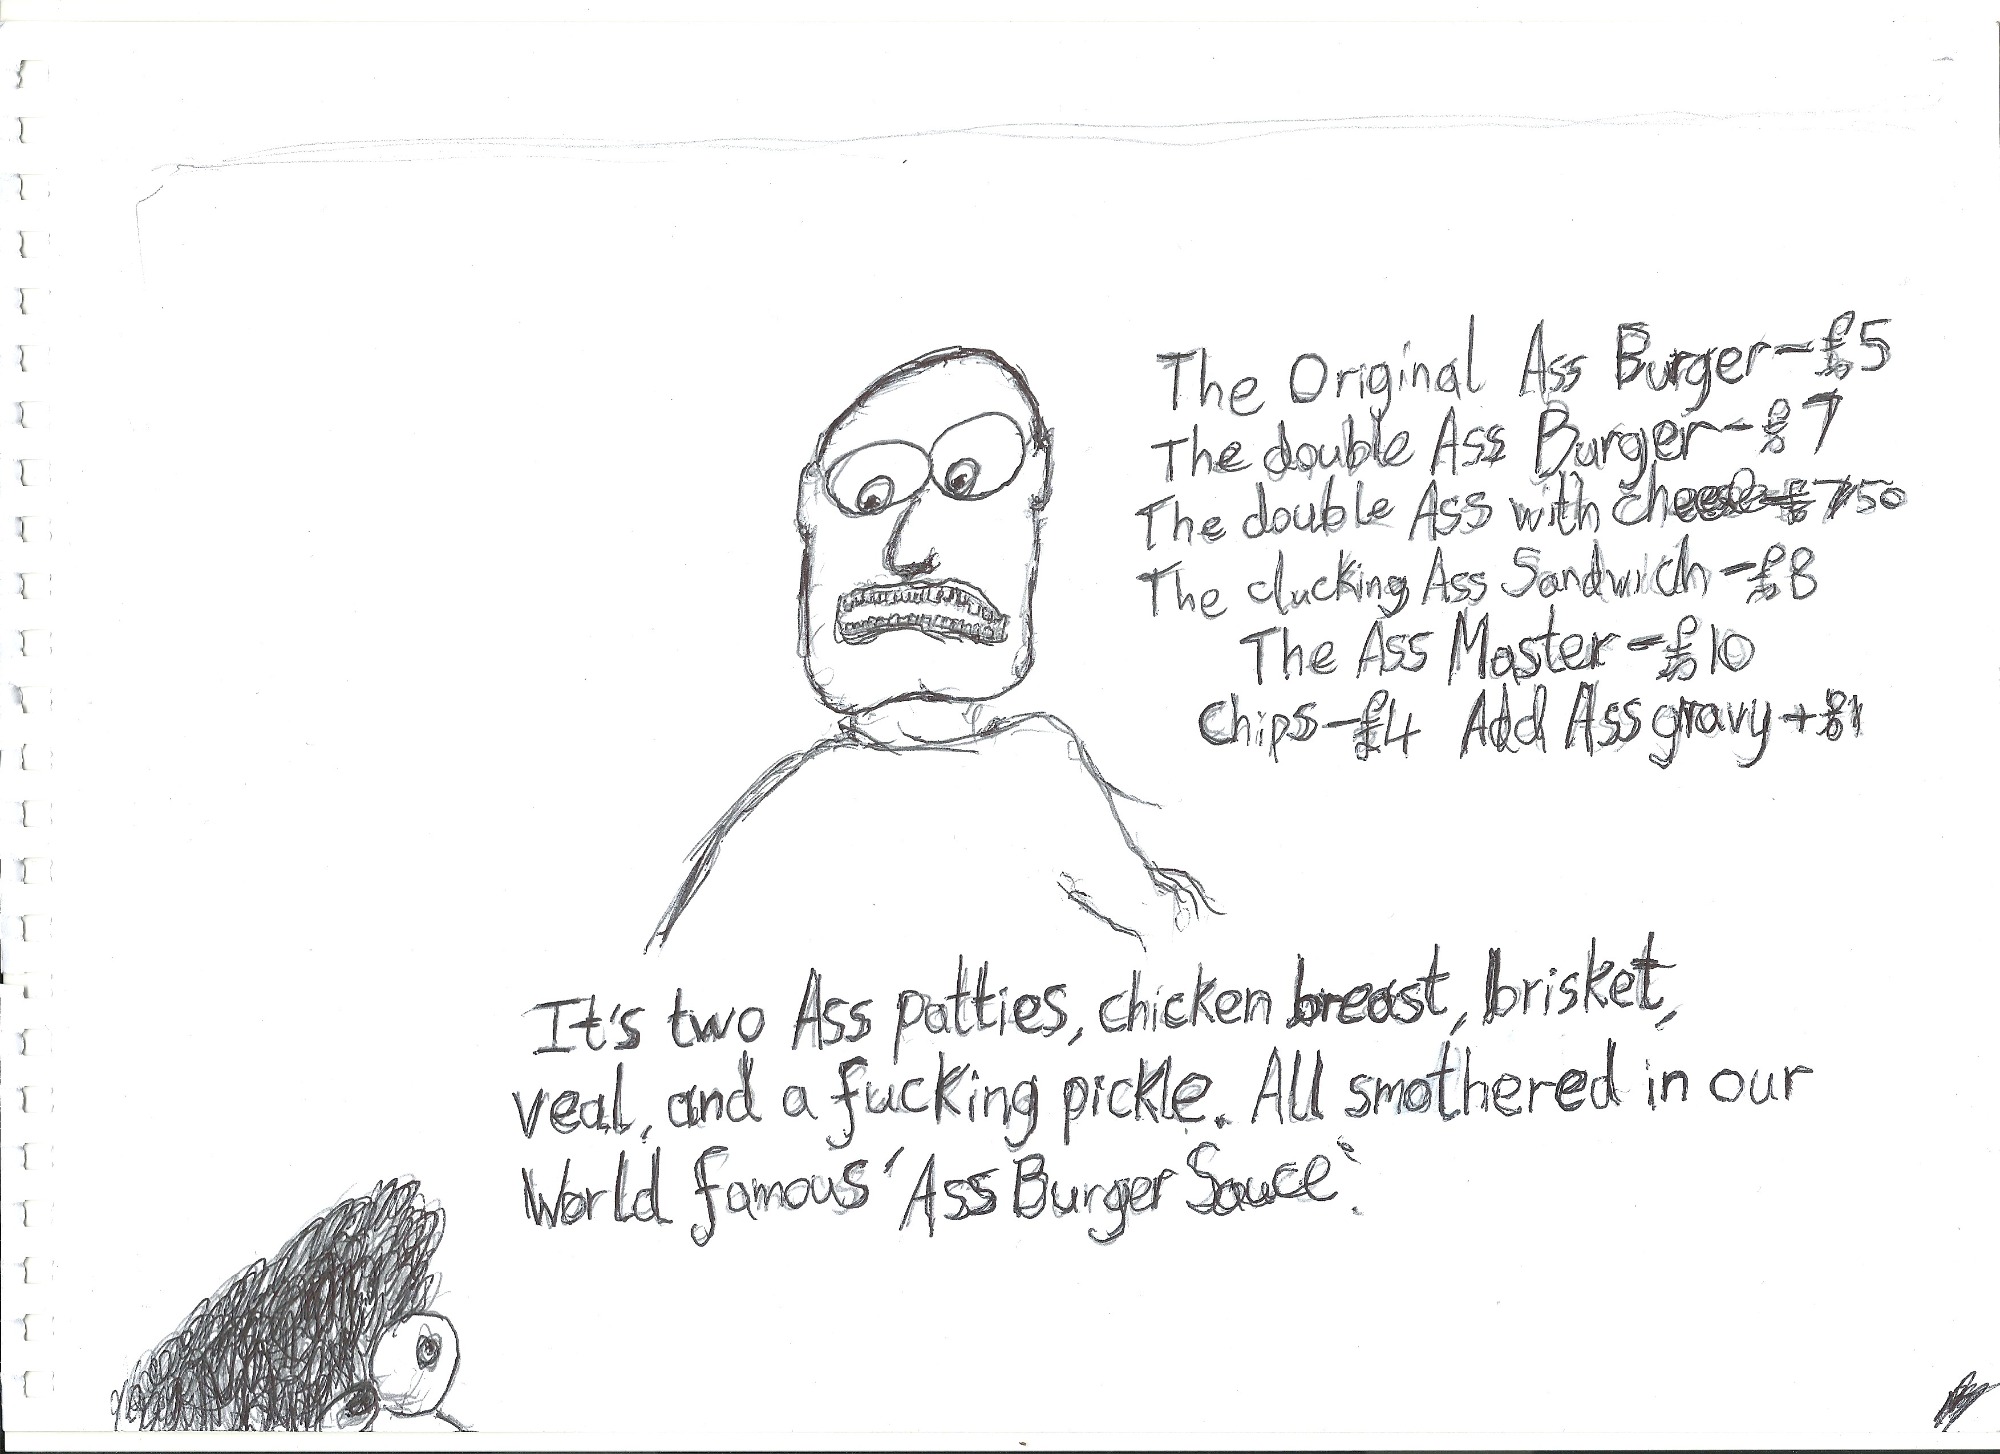 The Original Ass Burger-£5
The double Ass Burger-£7
The double Ass with cheese-£750
The clucking Ass Sandwich-£8
The Ass Master-£10
Chips-£4 Add Ass gravy+£1
It's two Ass patties, chicken breast, brisket,
veal, and a fucking pickle. All smothered in our
World famous 'Ass Burger Sauce'.